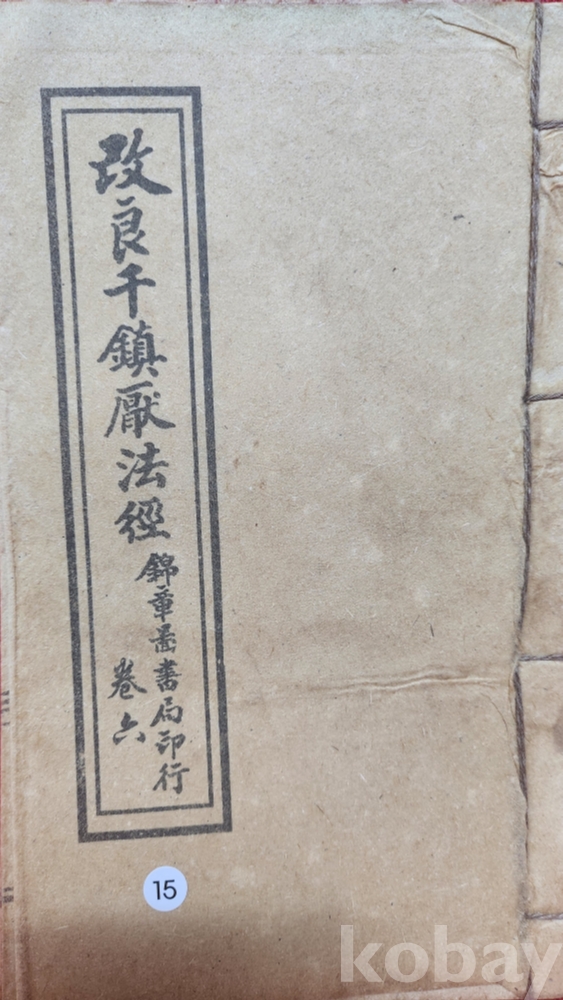 改良千鎮厭法經
錦章啚書局印行
卷六
15
kobay